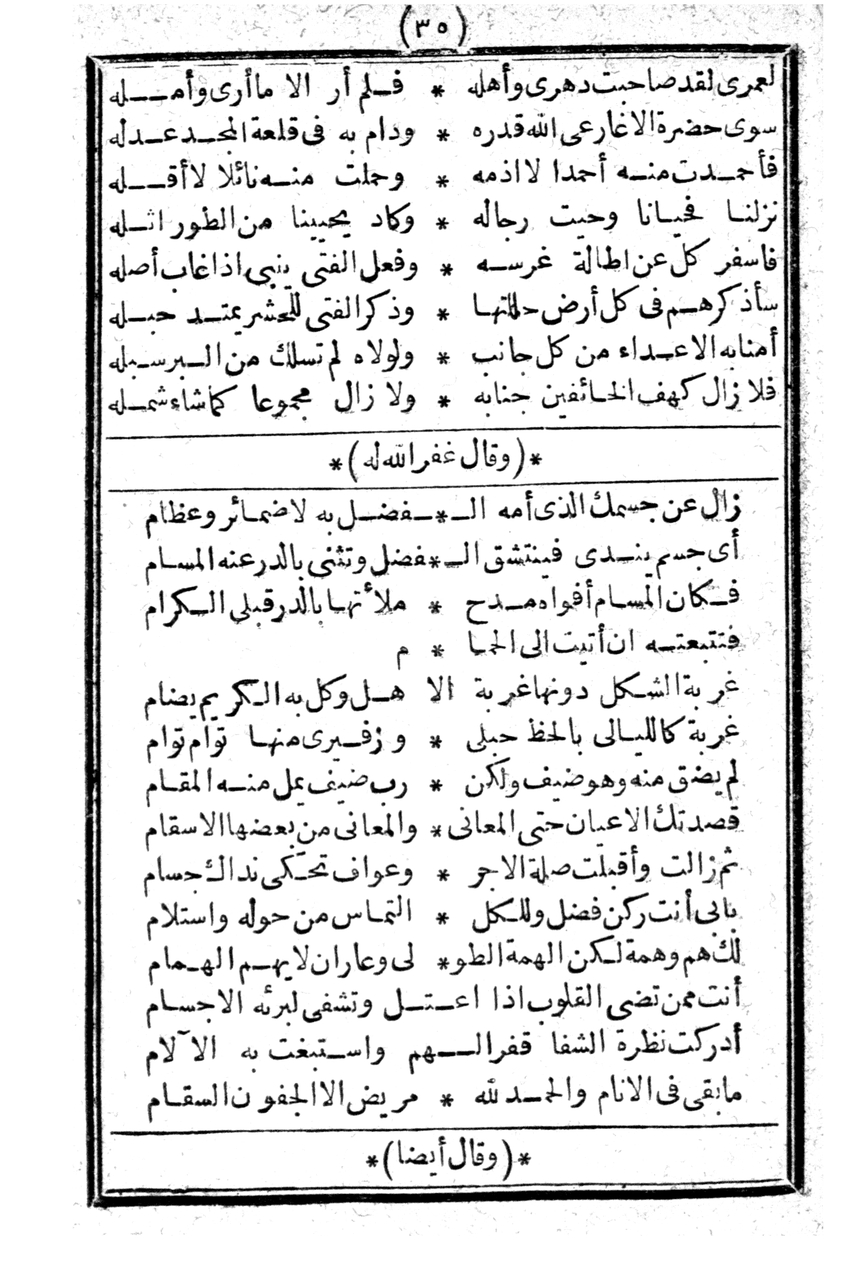 (٣٥)
لعمرى لقد صاحبت دهرى وأهله * فلم أر الا ما أرى وأمله
سوى حضرة الاغا رعى الله قدره * ودام به فى قلعة المجد عدله
فأحمدت منه أحمدا لا اذمه * وحملت منه نائلا لا أقله
نزلنا فحيانا وحيت رجاله * وكاد يحيينا من الطور اثله
فاسفر كل عن اطالة غرسه * وفعل الفتى ينبى اذا غاب أصله
سأذكرهم فى كل أرض حللتها * وذكر الفتى للحشر يمتد حبله
أمنا به الاعداء من كل جانب * ولولاه لم تسلك من البر سبله
فلا زال كهف الخائفين جنابه * ولا زال مجموعا كما شاء شمله
*(وقال غفر الله له)*
زال عن جسمك الذى أمه الـ * ـفضل به لا ضمائر وعظام
أى جسم يندى فينتشق الـ * ـفضل وتثنى بالدر عنه المسام
فكان المسام أفواه مدح * ملأتها بالدر قبلى الكرام
فتتبعته ان أتيت الى الحما * م
غربة الشكل دونها غربة الا هل وكل به الكريم يضام
غربة كالليالى بالحظ حبلى * و زفيرى منها توام توام
لم يضق منه وهو ضيف ولكن * رب ضيف يمل منه المقام
قصدتك الاعيان حتى المعانى * والمعانى من بعضها الاسقام
ثم زالت وأقبلت صلة الاجر * وعواف تحتكى نداك جسام
بابى أنت ركن فضل وللكل * التماس من حوله واستلام
لك هم وهمة لكن الهمة الطو * لى وعار ان لا يهم الهمام
أنت ممن تضى القلوب اذا اعتل وتشفى لبرئه الاجسام
أدركت نظرة الشفا قفر الهم واستبغت به الآلام
ما بقى فى الانام والحمد لله * مريض الا الجفون السقام
*(وقال أيضا)*